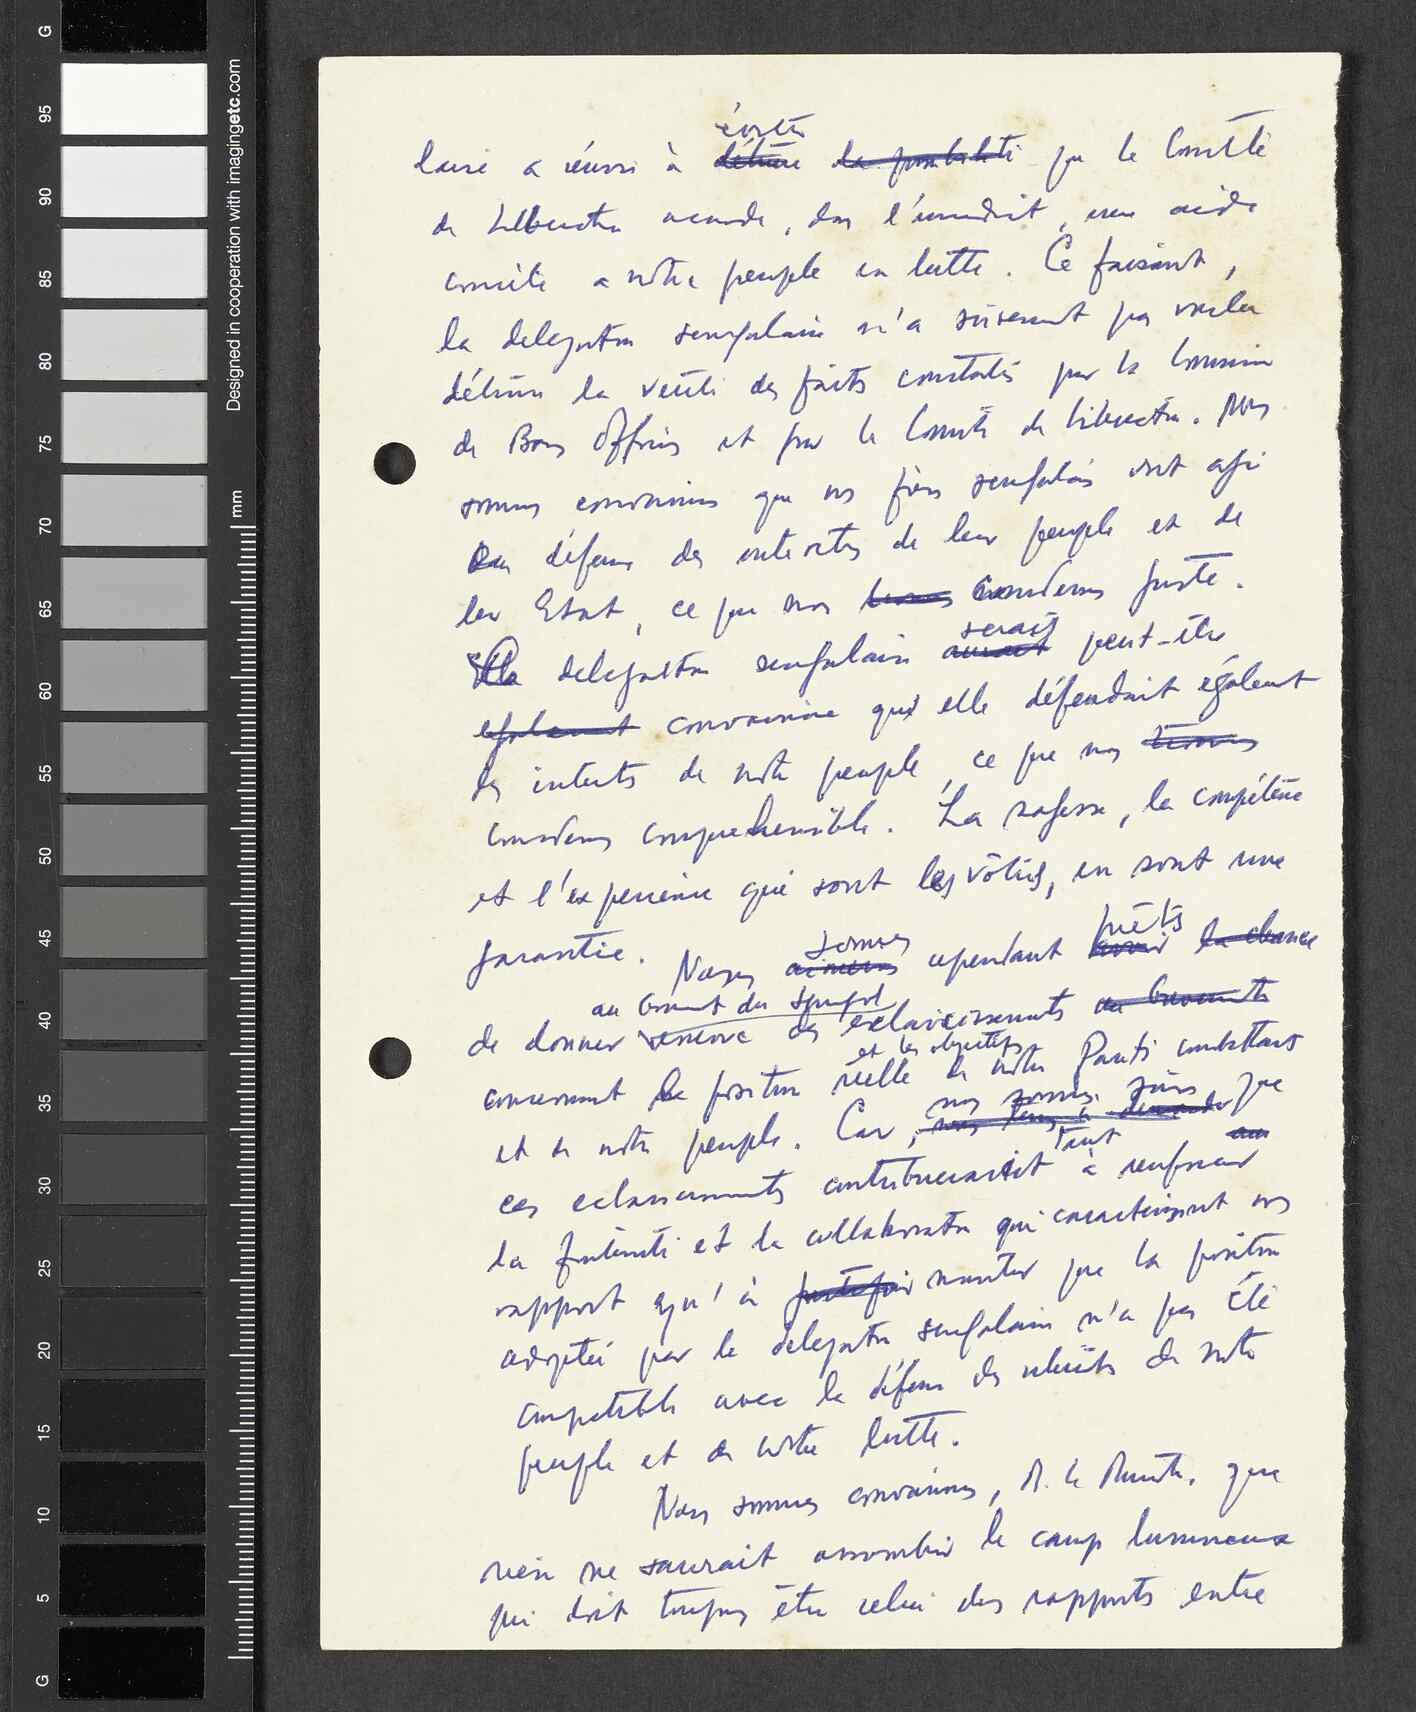 G
95
90
85
80
75
70
65
60
55
50
45
40
35
30
25
20
15
10
5
G
Designed in cooperation with imagingetc.com
mm
éviter
laise a réussi à détruire la possibilité que le Comité
de Libération accorde, dans l'immédiat, une aide
concrète a notre peuple en lutte. Ce faisant,
la delegation senegalaise n'a sûrement pas voulu
détruire la verité des faits constatés par la Commission
de Bons Offices et par le Comité de Libération. Nous
sommes convaincus que nos frères senegalais ont agi
en défense des interets de leur peuple et de
leur Etat, ce que nous considerons juste.
La delegation senegalaise serait peut-être
egalement convaincue qu'elle défendait également
les interets de notre peuple, ce que nous
considerons comprehensible. La sagesse, la compétence
et l'experience qui sont les vôtres, en sont une
garantie. Nous sommes cependant prêts la chance
au Gouvernement du Senegal
de donner encore des eclaircissements au Gouvernement
et les objectifs
concernant la position réelle de notre Parti combattant
nous sommes sûrs
et de notre peuple. Car, que
tant
ces eclaircissements contribueraient à renforcer
la fraternité et la collaboration qui caracterisent nos
rapport qu'à justifier montrer que la position
adoptée par la delegation senegalaise n'a pas été
compatible avec la défense des intérêts de notre
peuple et de notre lutte.
Nous sommes convaincus, M. le Ministre, que
rien ne saurait assombrir le camp lumineux
qui doit toujours être celui des rapports entre